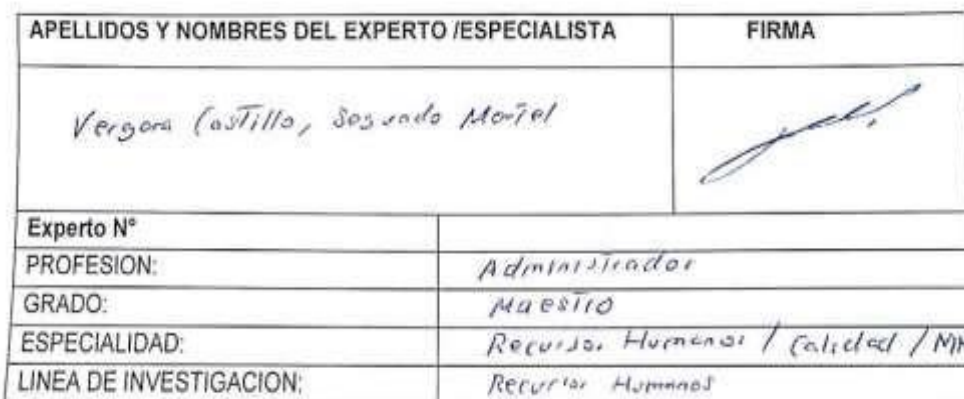 APELLIDOS Y NOMBRES DEL EXPERTO /ESPECIALISTA FIRMA
Vergara Castillo, Segundo
Experto Nº
PROFESION: Administrador
GRADO: Maestro
ESPECIALIDAD: Recursos Humanos / Calidad /
LINEA DE INVESTIGACION: Recursos Humanos